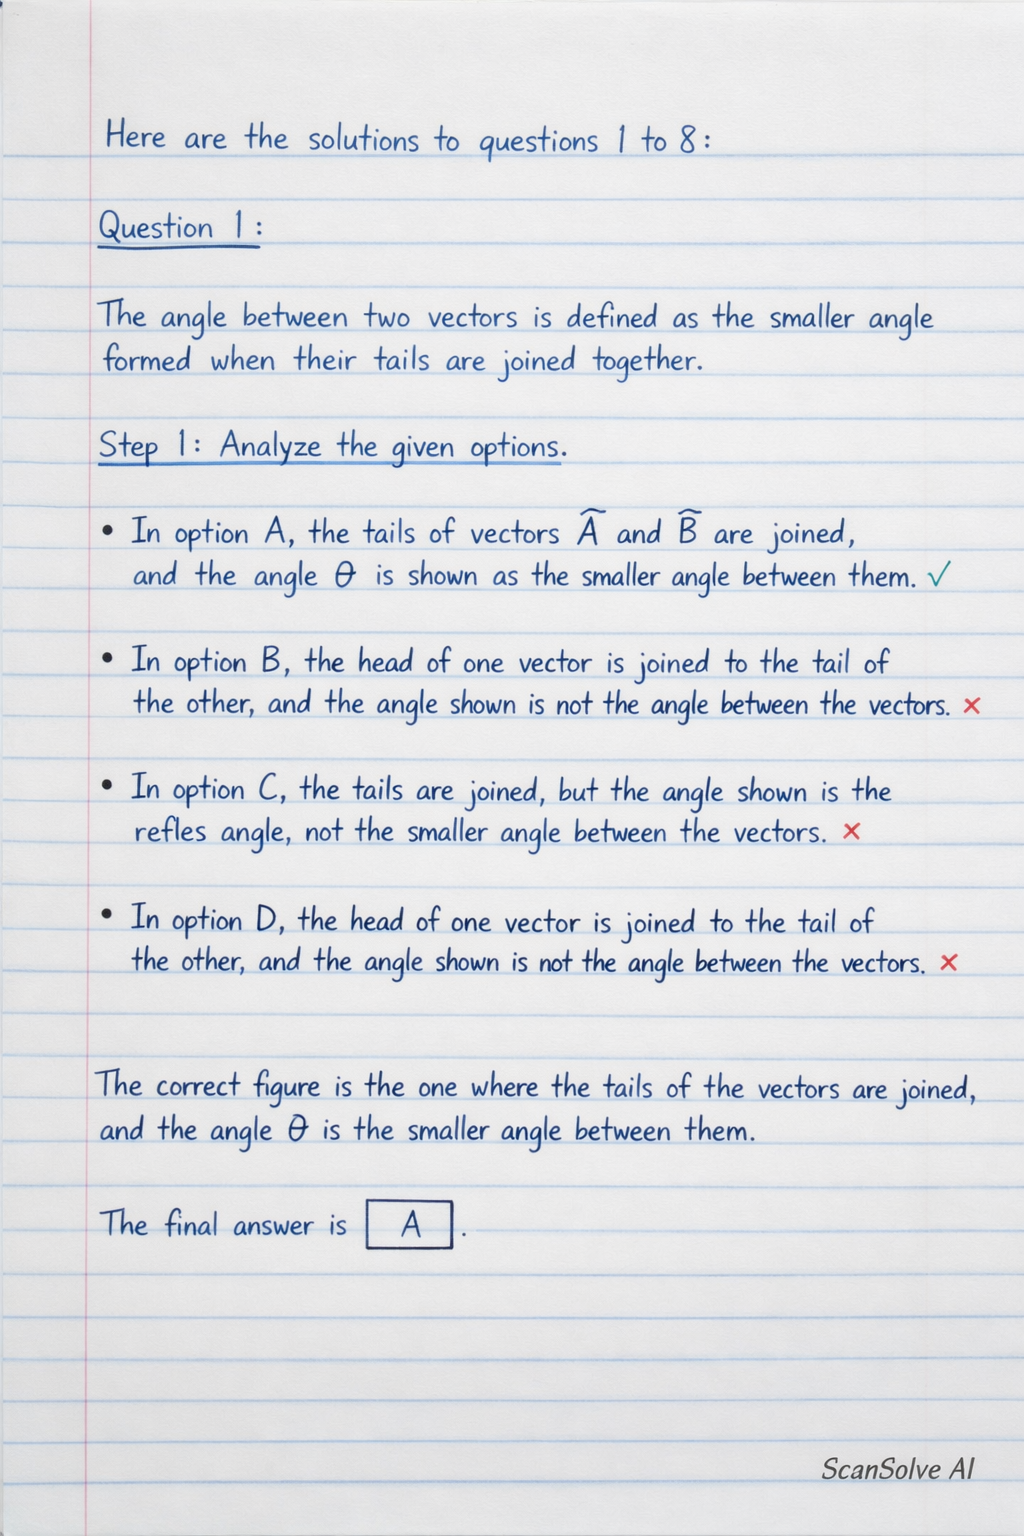 Here are the solutions to questions 1 to 8:
Question 1:
The angle between two vectors is defined as the smaller angle
formed when their tails are joined together.
Step 1: Analyze the given options.
• In option A, the tails of vectors A͡ and B͡ are joined,
and the angle θ is shown as the smaller angle between them. ✓
• In option B, the head of one vector is joined to the tail of
the other, and the angle shown is not the angle between the vectors. ×
• In option C, the tails are joined, but the angle shown is the
refles angle, not the smaller angle between the vectors. ×
• In option D, the head of one vector is joined to the tail of
the other, and the angle shown is not the angle between the vectors. ×
The correct figure is the one where the tails of the vectors are joined,
and the angle θ is the smaller angle between them.
The final answer is A .
ScanSolve AI